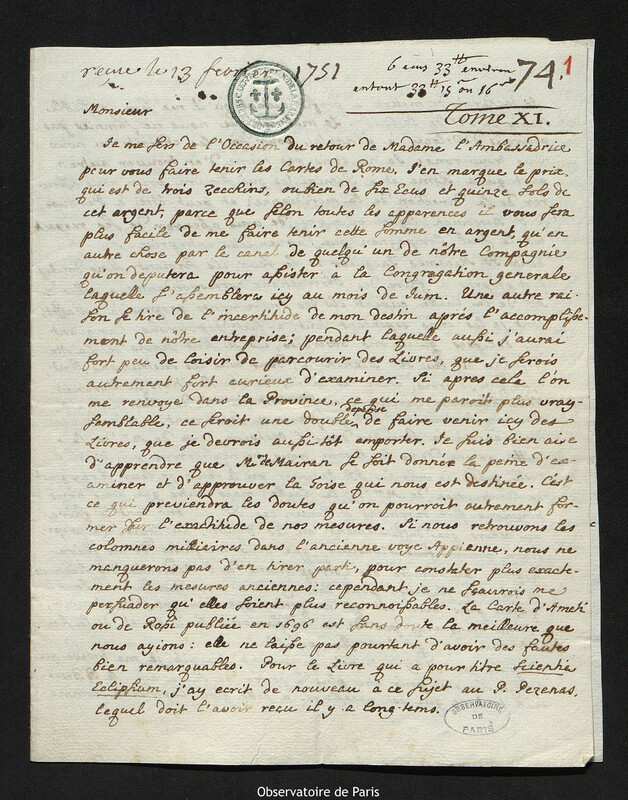 reçue le 13 fevrier 1751
6 ecus 33tt environ
entout 33tt 15 ou 16s
74.
1
Tome XI.
Monsieur
Je me sers de l'Occasion du retour de Madame l'Ambassadrice
pour vous faire tenir les Cartes de Rome. J'en marque le prix
qui est de trois Zecchins, oubien de six Ecus et quinze sols de
cet argent, parce que selon toutes les apparences il vous sera
plus facile de me faire tenir cette somme en argent, qu'en
autre chose par le canal de quelqu'un de nôtre Compagnie
qu'on deputera pour assister à la Congregation generale
laquelle s'assemblera icy au mois de Juin. Une autre rai-
son se tire de l'incertitude de mon destin après l'accomplisse-
ment de nôtre entreprise; pendant laquelle aussi j'aurai
fort peu de loisir de parcourir des Livres, que je serois
autrement fort curieux d'examiner. Si apres cela l'on
me renvoye dans la Province, ce qui me paroit plus vray-
semblable, ce seroit une double depense de faire venir icy des
Livres, que je devrois aussi-tôt emporter. Je suis bien aise
d'apprendre que Mr. de Mairan se soit donnée la peine d'ex-
aminer et d'approuver la Toise qui nous est destinée. C'est
ce qui previendra les doutes qu'on pourroit autrement for-
mer sur l'exactitude de nos mesures. Si nous retrouvons les
colomnes milliaires dans l'ancienne voye Appienne, nous ne
manquerons pas d'en tirer parti, pour constater plus exacte-
ment les mesures anciennes: cependant je ne sçaurois me
persuader qu'elles soient plus reconnoissables. La Carte d'Ameti
ou de Rossi publiée en 1696 est sans doute la meilleure que
nous ayions: elle ne laisse pas pourtant d'avoir des fautes
bien remarquables. Pour le Livre qui a pour titre Scientia
Eclipsium, j'ay ecrit de nouveau à ce sujet au P. Pezenas,
lequel doit l'avoir reçu il y a long-tems.
OBSERVATOIRE
DE
PARIS
Observatoire de Paris